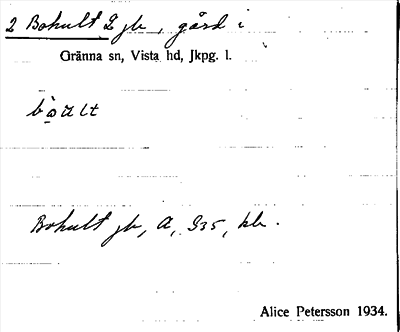 2 Bohult 2 jb, gård i
Gränna sn, Vista hd, Jkpg. l.
Bohult jb, A, 935, kb.
Alice Petersson 1934.